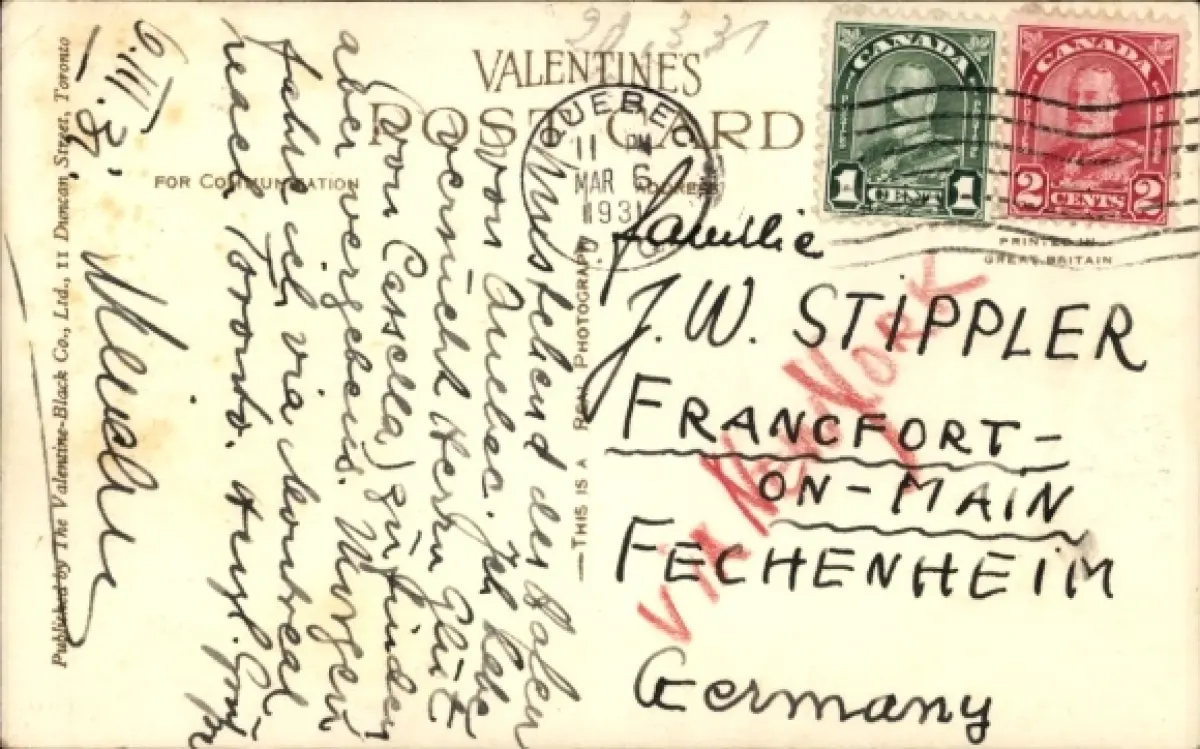 VALENTINE'S
POST CARD
FOR COMMUNICATION
ADDRESS
QUEBEC
11 PM
MAR 6
1931
CANADA
1 CENT 1
CANADA
2 CENTS 2
PRINTED IN
GREAT BRITAIN
Familie
J. W. STIPPLER
FRANCFORT-
ON-MAIN
FECHENHEIM
Germany
VIA NEW YORK
—THIS IS A REAL PHOTOGRAPH
Umstehend der Hafen
von Quebec. Ich habe
versucht Herrn
(von Cassella) zu finden
aber vergebens. Morgen
fahre ich via Montreal
nach Toronto. Herzl.
6.III.31.
Published by The Valentine-Black Co., Ltd., 11 Duncan Street, Toronto